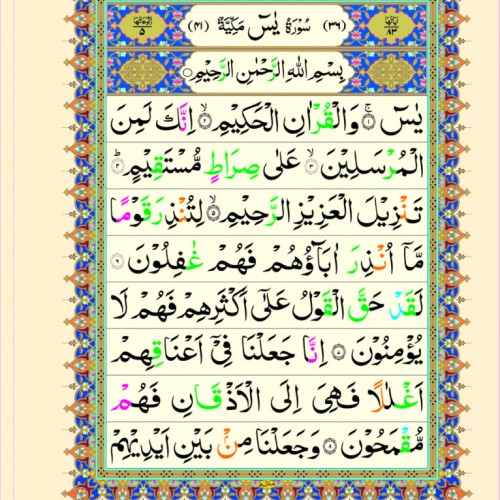 اٰیَاتُهَا ٨٣ (٣٦) سُوْرَةُ یٰسٓ مَكِّیَّةٌ (٤١) رُكُوْعَاتُهَا ٥
بِسْمِ اللهِ الرَّحْمٰنِ الرَّحِیْمِ
یٰسٓ ۚ﴿۱﴾ وَالْقُرْاٰنِ الْحَكِیْمِ ۙ﴿۲﴾ اِنَّكَ لَمِنَ
الْمُرْسَلِیْنَ ۙ﴿۳﴾ عَلٰی صِرَاطٍ مُّسْتَقِیْمٍ ؕ﴿۴﴾
تَنْزِیْلَ الْعَزِیْزِ الرَّحِیْمِ ۙ﴿۵﴾ لِتُنْذِرَ قَوْمًا
مَّاۤ اُنْذِرَ اٰبَآؤُهُمْ فَهُمْ غٰفِلُوْنَ ﴿۶﴾
لَقَدْ حَقَّ الْقَوْلُ عَلٰۤی اَكْثَرِهِمْ فَهُمْ لَا
یُؤْمِنُوْنَ ﴿۷﴾ اِنَّا جَعَلْنَا فِیْۤ اَعْنَاقِهِمْ
اَغْلٰلًا فَهِیَ اِلَی الْاَذْقَانِ فَهُمْ
مُّقْمَحُوْنَ ﴿۸﴾ وَجَعَلْنَا مِنْۢ بَیْنِ اَیْدِیْهِمْ